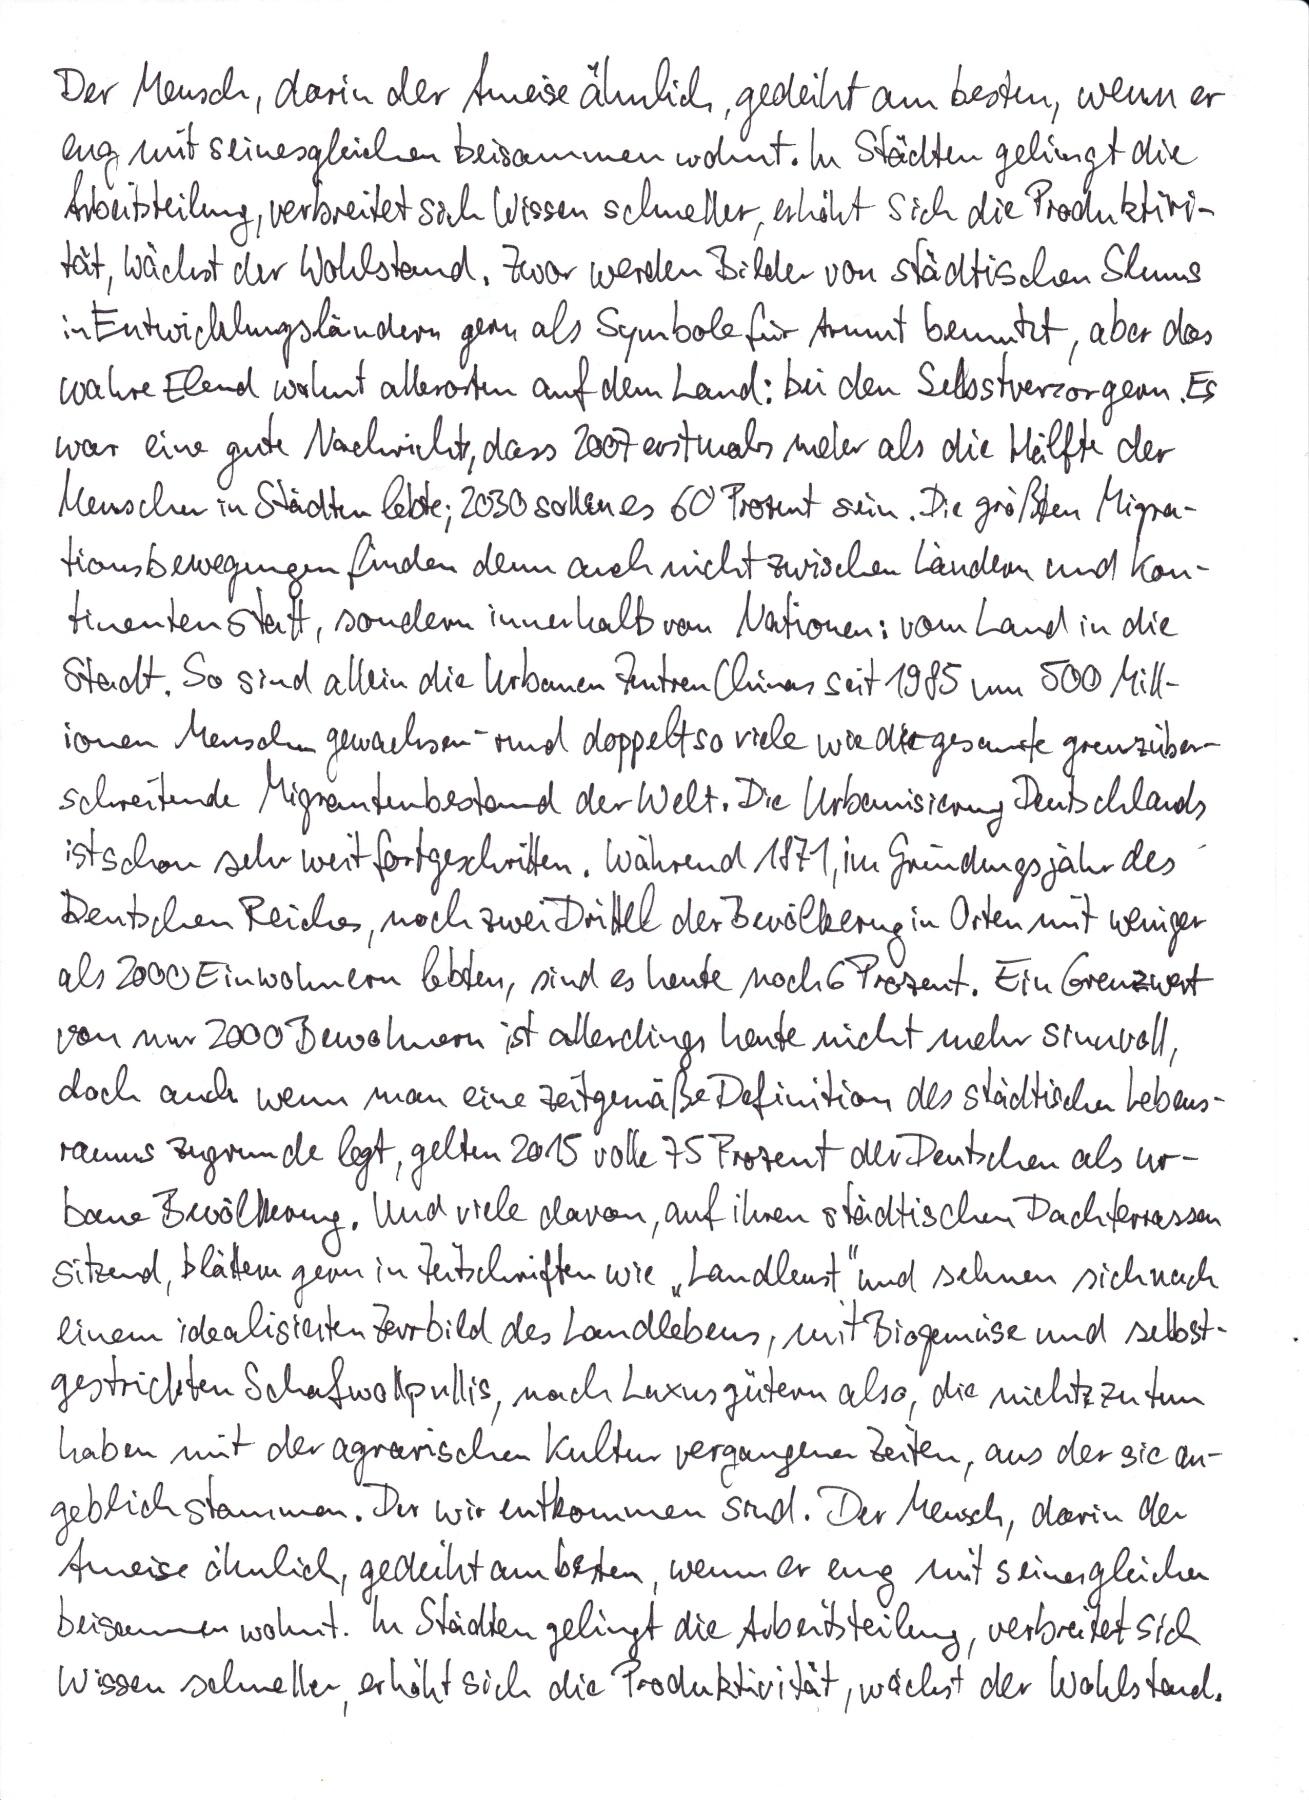 Der Mensch, darin der Ameise ähnlich, gedeiht am besten, wenn er
eng mit seinesgleichen beisammen wohnt. In Städten gelingt die
Arbeitsteilung, verbreitet sich Wissen schneller, erhöht sich die Produktivi-
tät, wächst der Wohlstand. Zwar werden Bilder von städtischen Slums
in Entwicklungsländern gern als Symbole für Armut benutzt, aber das
wahre Elend wohnt allerorten auf dem Land: bei den Selbstversorgern. Es
war eine gute Nachricht, dass 2007 erstmals mehr als die Hälfte der
Menschen in Städten lebte; 2030 sollen es 60 Prozent sein. Die größten Migra-
tionsbewegungen finden denn auch nicht zwischen Ländern und Kon-
tinenten statt, sondern innerhalb von Nationen: vom Land in die
Stadt. So sind allein die Urbanen Zentren Chinas seit 1985 um 500 Mill-
ionen Menschen gewachsen - rund doppelt so viele wie die gesamte grenzüber-
schreitende Migrantenbestand der Welt. Die Urbanisierung Deutschlands
ist schon sehr weit fortgeschritten. Während 1871, im Gründungsjahr des
Deutschen Reiches, noch zwei Drittel der Bevölkerung in Orten mit weniger
als 2000 Einwohnern lebten, sind es heute noch 6 Prozent. Ein Grenzwert
von nur 2000 Bewohnern ist allerdings heute nicht mehr sinnvoll,
doch auch wenn man eine zeitgemäße Definition des städtischen Lebens-
raums zugrunde legt, gelten 2015 volle 75 Prozent der Deutschen als ur-
bane Bevölkerung. Und viele davon, auf ihren städtischen Dachterrassen
sitzend, blättern gern in Zeitschriften wie „Landlust" und sehnen sich nach
einem idealisierten Zerrbild des Landlebens, mit Biogemüse und selbst-
gestrickten Schafwollpullis, nach Luxusgütern also, die nichts zu tun
haben mit der agrarischen Kultur vergangener Zeiten, aus der sie an-
geblich stammen. Der wir entkommen sind. Der Mensch, darin der
Ameise ähnlich, gedeiht am besten, wenn er eng mit seinesgleichen
beisammen wohnt. In Städten gelingt die Arbeitsteilung, verbreitet sich
Wissen schneller, erhöht sich die Produktivität, wächst der Wohlstand.